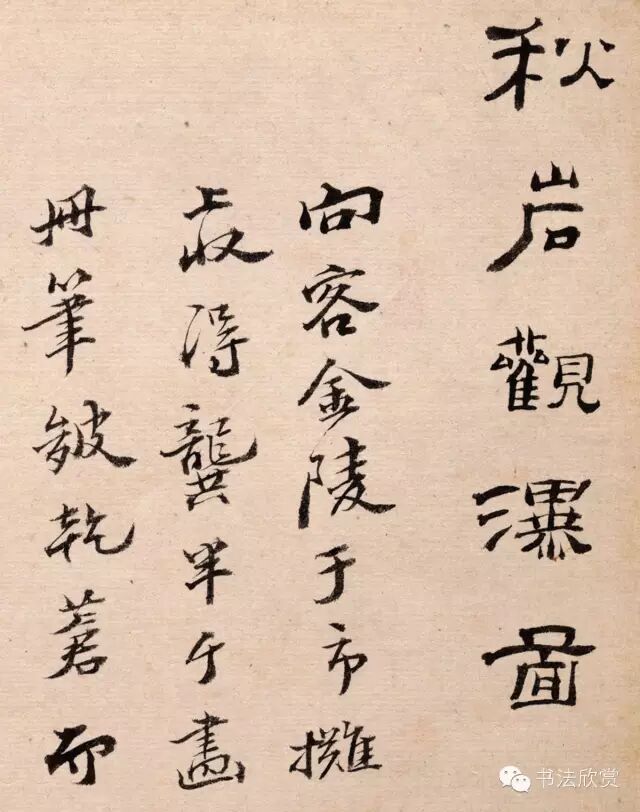 秋岩觀瀑圖
向客金陵于市攤
上收得龔半千畫
冊筆皴乾蒼而
书法欣赏